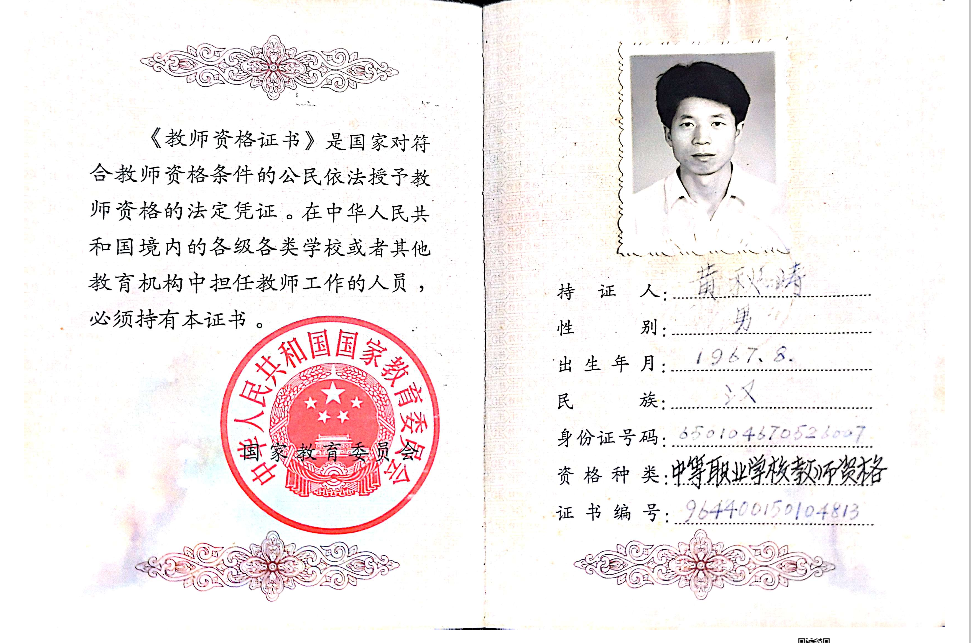 《教师资格证书》是国家对符
合教师资格条件的公民依法授予教
师资格的法定凭证。在中华人民共
和国境内的各级各类学校或者其他
教育机构中担任教师工作的人员，
必须持有本证书。
中华人民共和国国家教育委员会
国家教育委员会
持证人：黄
性别：男
出生年月：1967.8.
民族：汉
身份证号码：
资格种类：中等职业学校教师资格
证书编号：964400150104813